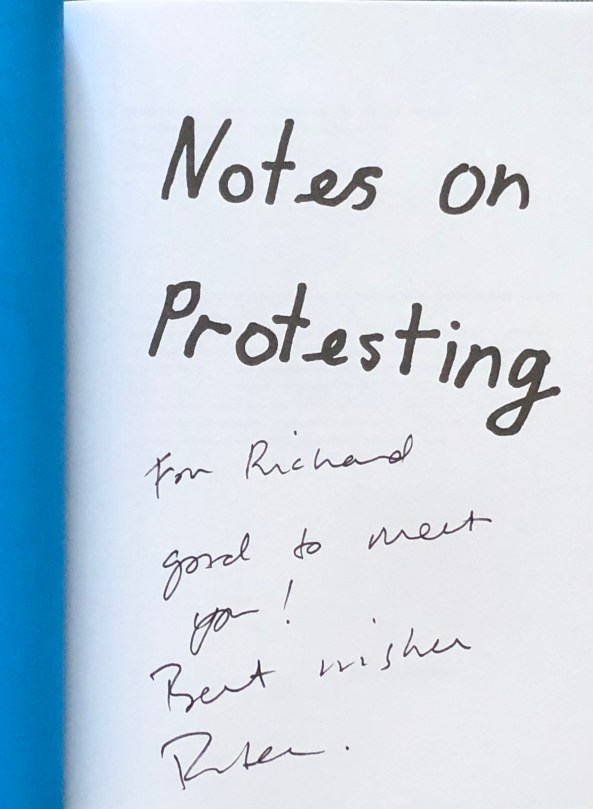 Notes on
Protesting
For Richard
good to meet
you!
Best wishes